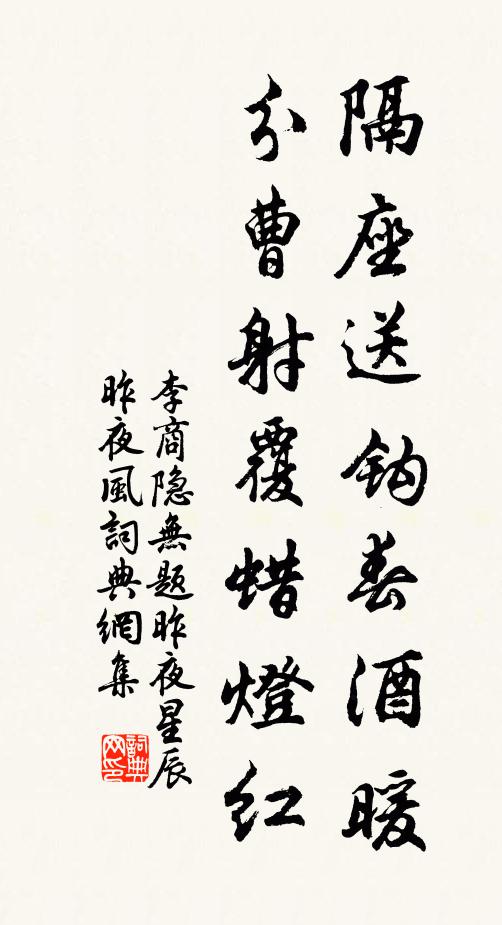 隔座送鈎春酒暖
分曹射覆蜡燈红
李商隐無题昨夜星辰
昨夜風詞典網集
詞典
网印